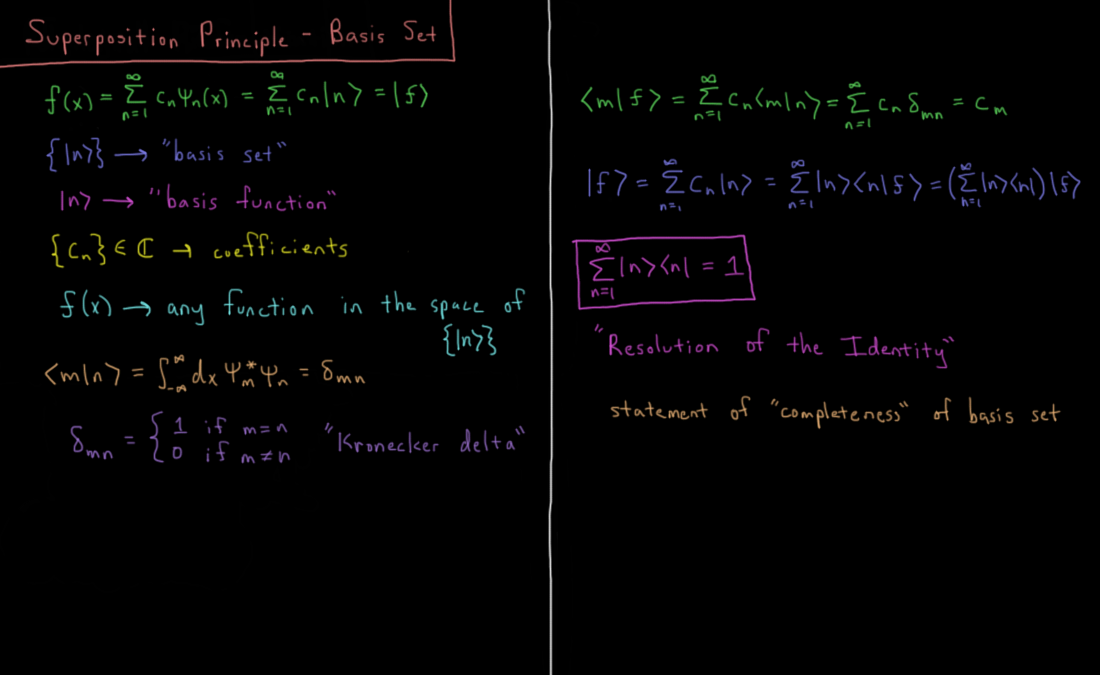 Superposition Principle - Basis Set
f(x) = ∑_{n=1}^{∞} cₙψₙ(x) = ∑_{n=1}^{∞} cₙ|n⟩ = |f⟩
{|n⟩} → "basis set"
|n⟩ → "basis function"
{cₙ} ∈ ℂ → coefficients
f(x) → any function in the space of
{|n⟩}
⟨m|n⟩ = ∫_{-∞}^{∞} dx ψₘ* ψₙ = δₘₙ
δₘₙ = { 1 if m=n "Kronecker delta"
0 if m≠n
⟨m|f⟩ = ∑_{n=1}^{∞} cₙ⟨m|n⟩ = ∑_{n=1}^{∞} cₙ δₘₙ = cₘ
|f⟩ = ∑_{n=1}^{∞} cₙ|n⟩ = ∑_{n=1}^{∞} |n⟩⟨n|f⟩ = (∑_{n=1}^{∞} |n⟩⟨n|)|f⟩
∑_{n=1}^{∞} |n⟩⟨n| = 1
"Resolution of the Identity"
statement of "completeness" of basis set